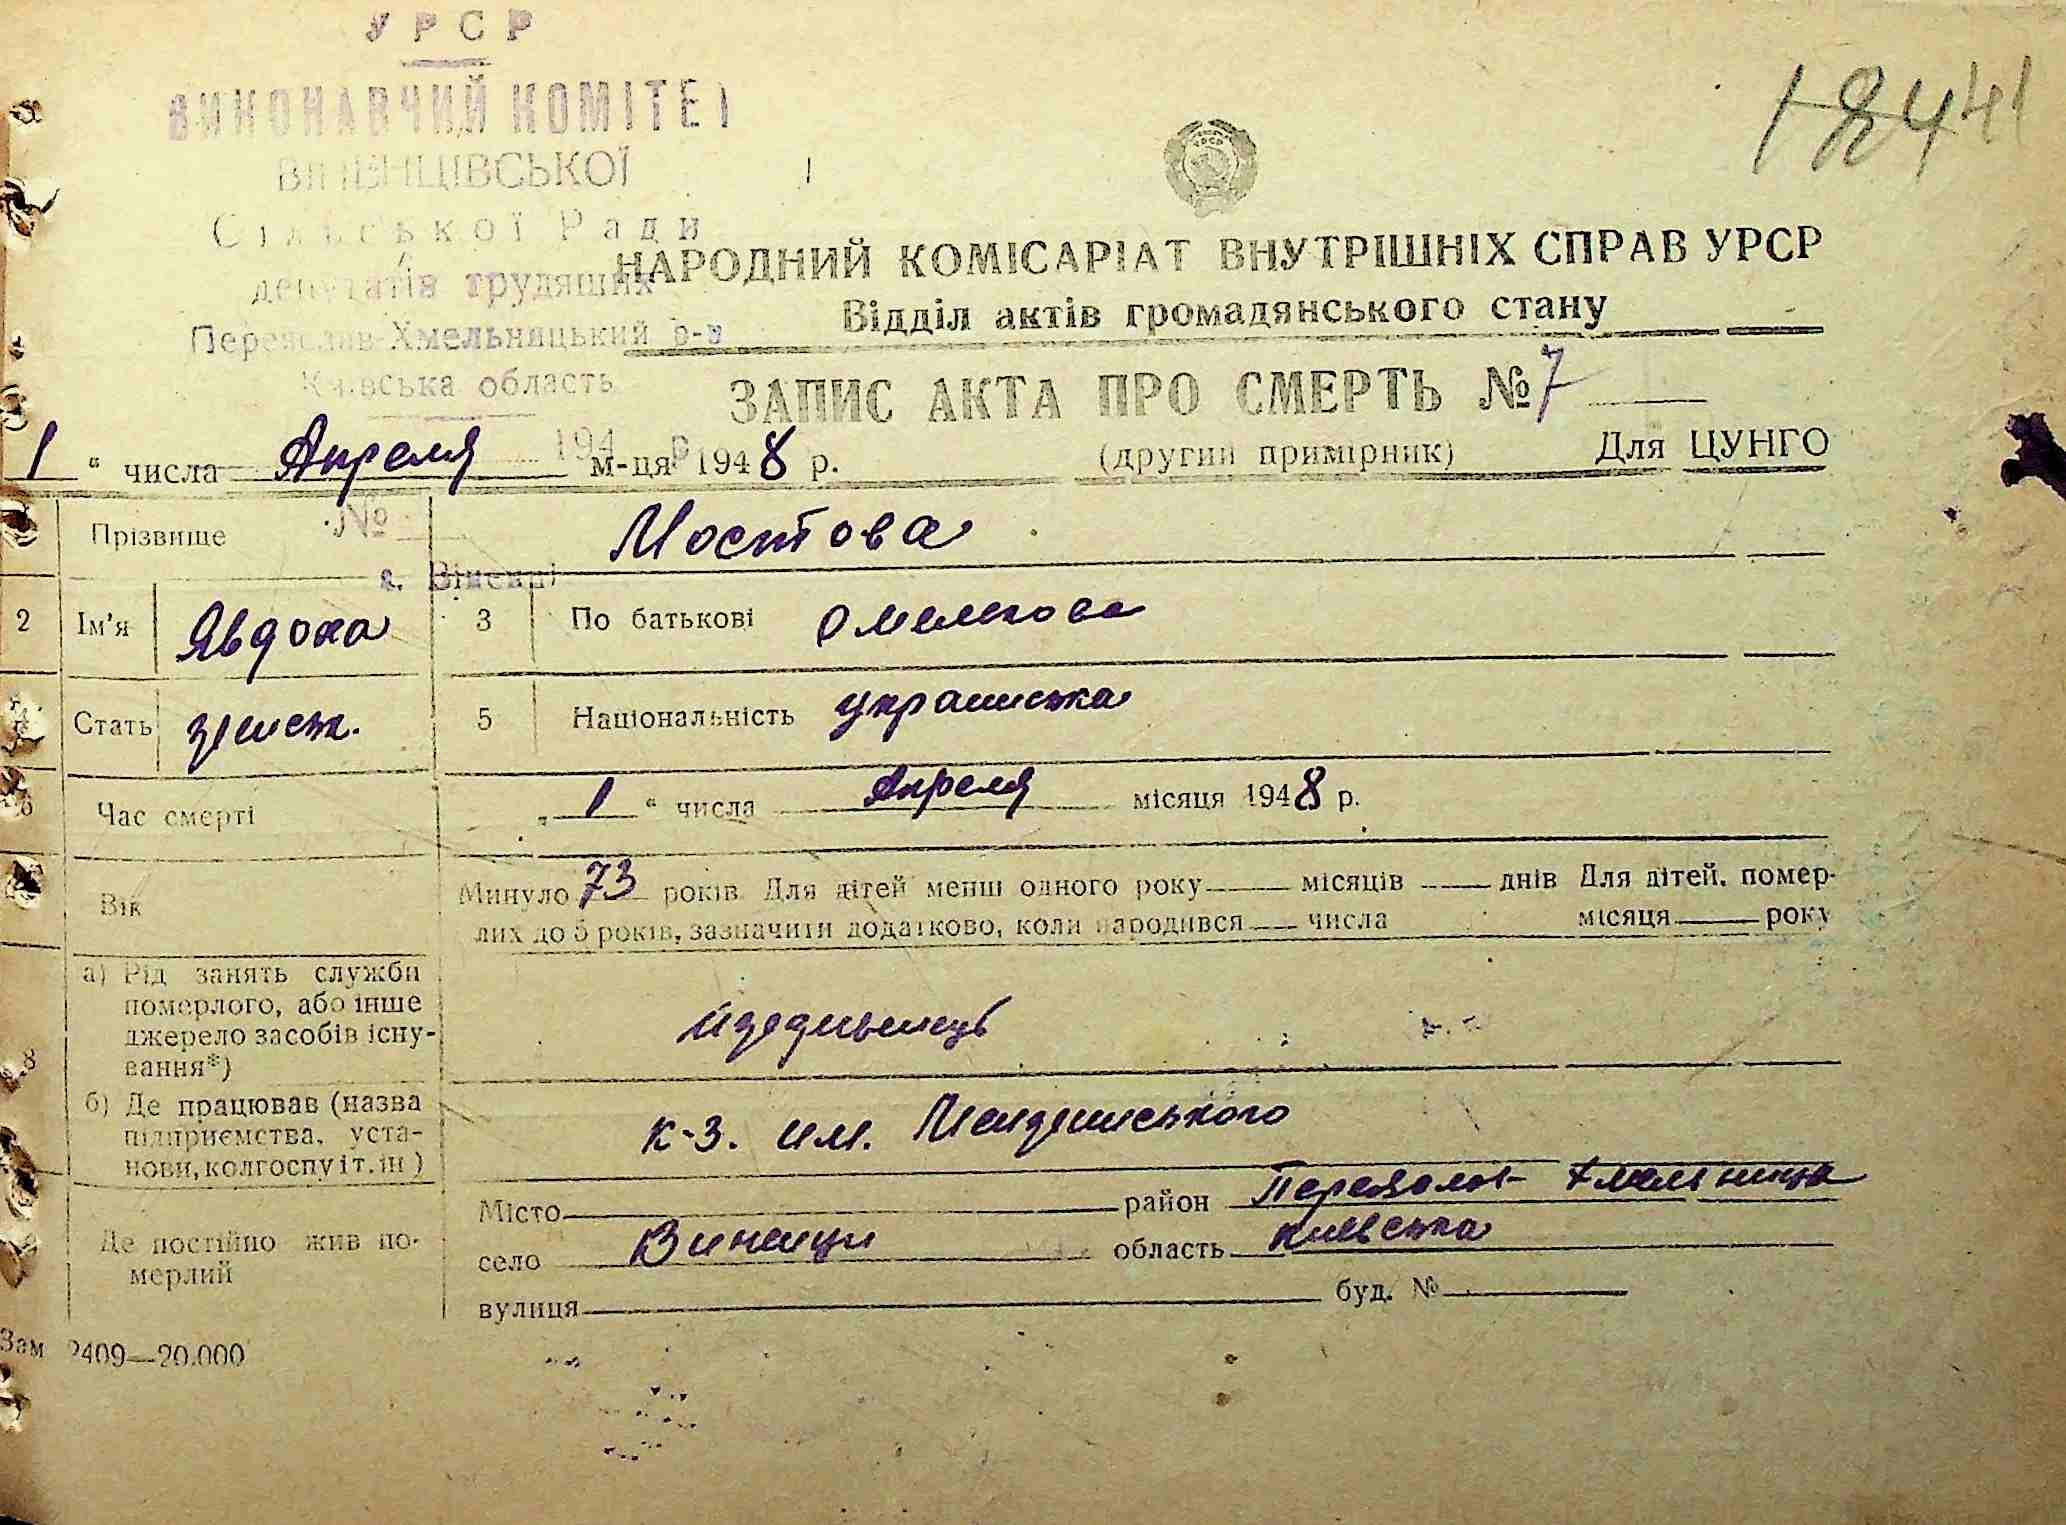 УРСР
ВИКОНАВЧИЙ КОМІТЕТ
ВІНЕНЦІВСЬКОЇ
Сільської Ради
депутатів трудящих
Переяслав-Хмельницький р-н
Київська область
194 р.
№
с. Віненці
1841
УРСР
НАРОДНИЙ КОМІСАРІАТ ВНУТРІШНІХ СПРАВ УРСР
Відділ актів громадянського стану
ЗАПИС АКТА ПРО СМЕРТЬ № 7
1 “ числа Апреля м-ця 1948 р. (другий примірник) Для ЦУНГО
Прізвище Мостова
2 Ім'я Явдоха 3 По батькові Омелькова
4 Стать женск. 5 Національність украинська
6 Час смерті „ 1 “ числа Апреля місяця 1948 р.
Вік Минуло 73 років. Для дітей менш одного року місяців днів Для дітей, помер-
лих до 5 років, зазначити додатково, коли народився числа місяця року
8 а) Рід занять служби
померлого, або інше
джерело засобів існу-
вання*)
иждивенець
б) Де працював (назва
підприємства, уста-
нови, колгоспу і т. ін.)
к-з. им.
Де постійно жив по-
мерлий
Місто район Переяслав-Хмельницка
село Виненци область Киевська
вулиця буд. №
Зам 2409—20.000